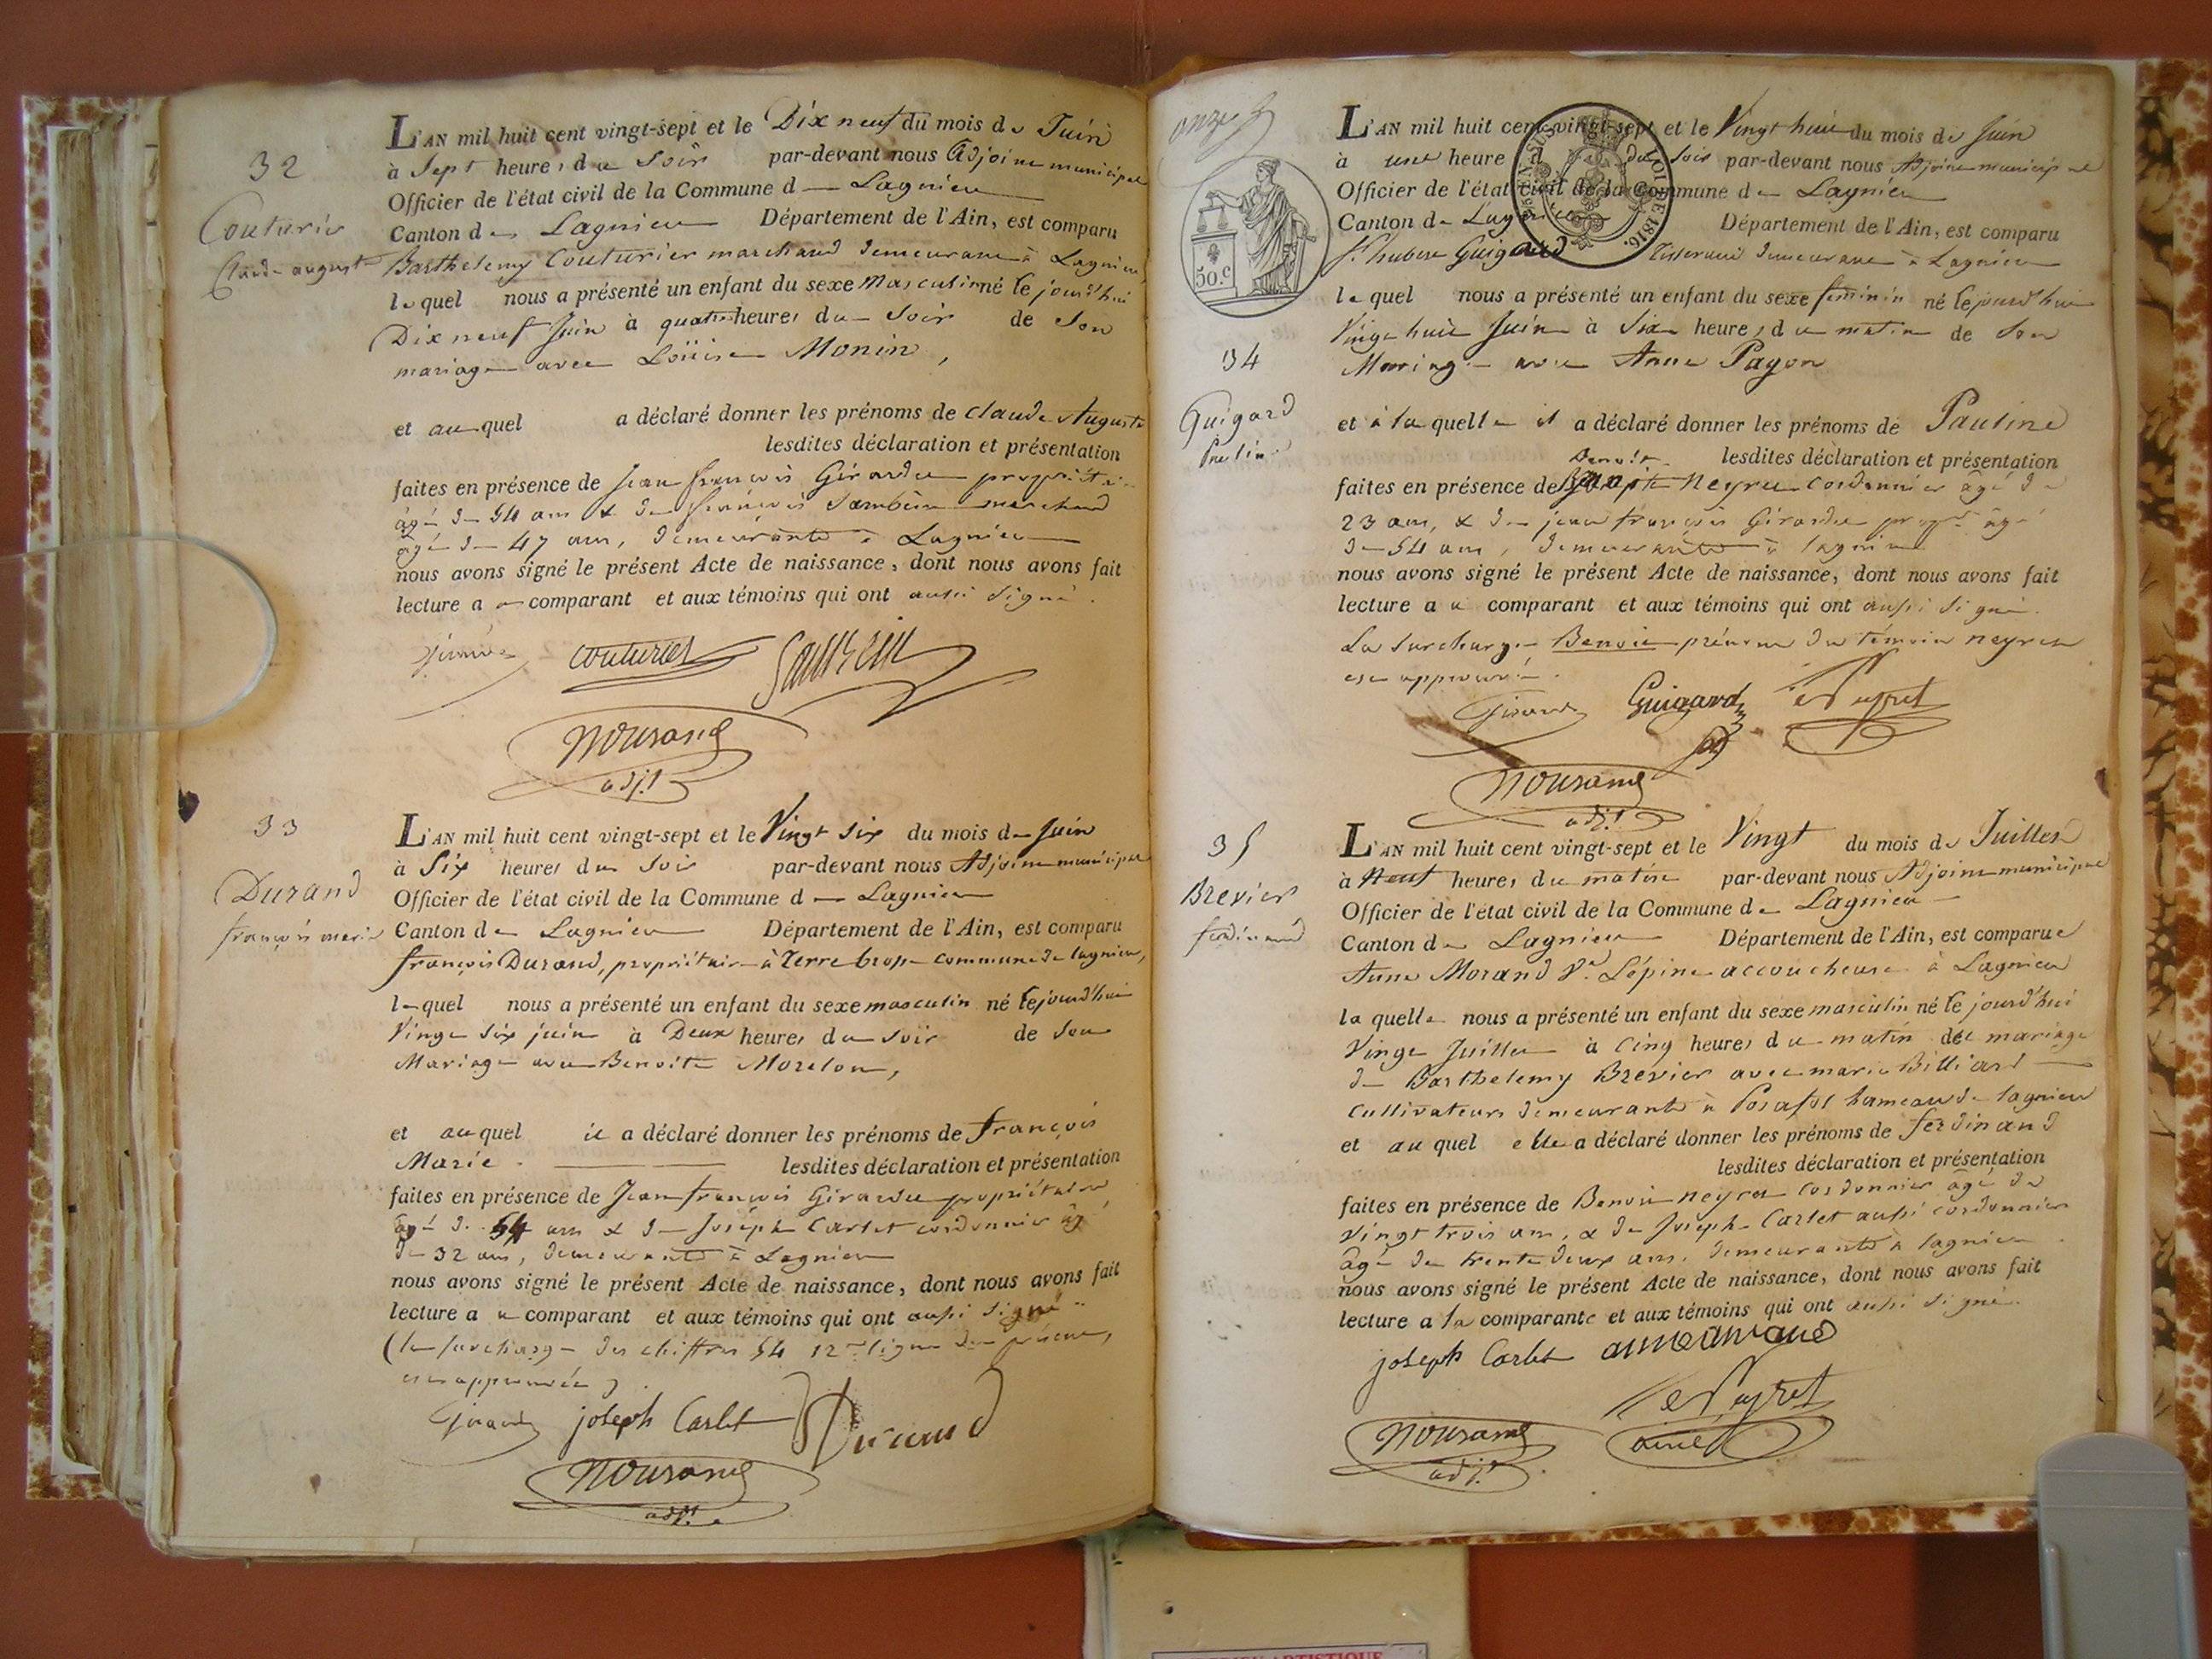 32
Couturier
Claude auguste
L'AN mil huit cent vingt-sept et le Dix neuf du mois de Juin
à Sept heures du Soir par-devant nous Adjoint municipal
Officier de l'état civil de la Commune de Lagnieu
Canton de Lagnieu Département de l'Ain, est comparu
Barthelemy Couturier marchand demeurant à Lagnieu
lequel nous a présenté un enfant du sexe Masculin né le jourd'hui
Dix neuf Juin à quatre heures du Soir de Son
mariage avec Loüise Monin,
et au quel a déclaré donner les prénoms de Claude Auguste
lesdites déclaration et présentation
faites en présence de Jean françois Girardu propriétaire
âgé de 54 ans & de françois marchand
âgé de 47 ans, demeurants à Lagnieu
nous avons signé le présent Acte de naissance, dont nous avons fait
lecture au comparant et aux témoins qui ont aussi signé.
couturier
adj.t
33
Durand
françois marie
L'AN mil huit cent vingt-sept et le Vingt Six du mois de Juin
à Six heures du Soir par-devant nous Adjoint municipal
Officier de l'état civil de la Commune de Lagnieu
Canton de Lagnieu Département de l'Ain, est comparu
françois Durand, propriétaire à commune de lagnieu,
lequel nous a présenté un enfant du sexe masculin né le jourd'hui
Vingt Six juin à Deux heures du Soir de Son
Mariage avec Benoite Morelon,
et au quel il a déclaré donner les prénoms de françois
Marie. lesdites déclaration et présentation
faites en présence de Jean françois Girardu propriétaire
âgé de 54 ans & de Joseph Carlet cordonnier âgé
de 32 ans, demeurants à Lagnieu
nous avons signé le présent Acte de naissance, dont nous avons fait
lecture au comparant et aux témoins qui ont aussi signé
(la surcharge des chiffres 54 12me ligne du présent,
est approuvée).
joseph Carlet Durand
adj.t
onze
50.c
34
Guigard
Pauline
L'AN mil huit cent vingt-sept et le Vingt huit du mois de Juin
à une heure du Soir par-devant nous Adjoint municipal
Officier de l'état civil de la Commune de Lagnieu
Canton de Lagnieu Département de l'Ain, est comparu
St. hubert Guigard Tisserand demeurant à Lagnieu
lequel nous a présenté un enfant du sexe feminin né le jourd'hui
Vingt huit Juin à Six heures du matin de Son
Mariage avec Anne Pagon
et à la quelle il a déclaré donner les prénoms de Pauline
lesdites déclaration et présentation
Benoit
faites en présence de Neyret cordonnier âgé de
23 ans, & de jean françois Girardu âgé
de 54 ans, demeurants à lagnieu
nous avons signé le présent Acte de naissance, dont nous avons fait
lecture au comparant et aux témoins qui ont aussi signé.
La Surcharge Benoit prénom du témoin neyret
est approuvée.
Guigard
adj.t
35
Brevier
ferdinand
L'AN mil huit cent vingt-sept et le Vingt du mois de Juillet
à Neuf heures du matin par-devant nous Adjoint municipal
Officier de l'état civil de la Commune de Lagnieu
Canton de Lagnieu Département de l'Ain, est comparue
Anne Morand Ve. Lépine accoucheuse à Lagnieu
la quelle nous a présenté un enfant du sexe masculin né le jourd'hui
Vingt Juillet à Cinq heures du matin du mariage
de Barthelemy Brevier avec marie Billiard
Cultivateurs demeurants à Posafol hameau de lagnieu
et au quel elle a déclaré donner les prénoms de ferdinand
lesdites déclaration et présentation
faites en présence de Benoit neyret cordonnier âgé de
Vingt trois ans, & de Joseph Carlet aussi cordonnier
âgé de trente deux ans, demeurants à lagnieu.
nous avons signé le présent Acte de naissance, dont nous avons fait
lecture a la comparante et aux témoins qui ont aussi signé.
joseph Carlet
adj.t